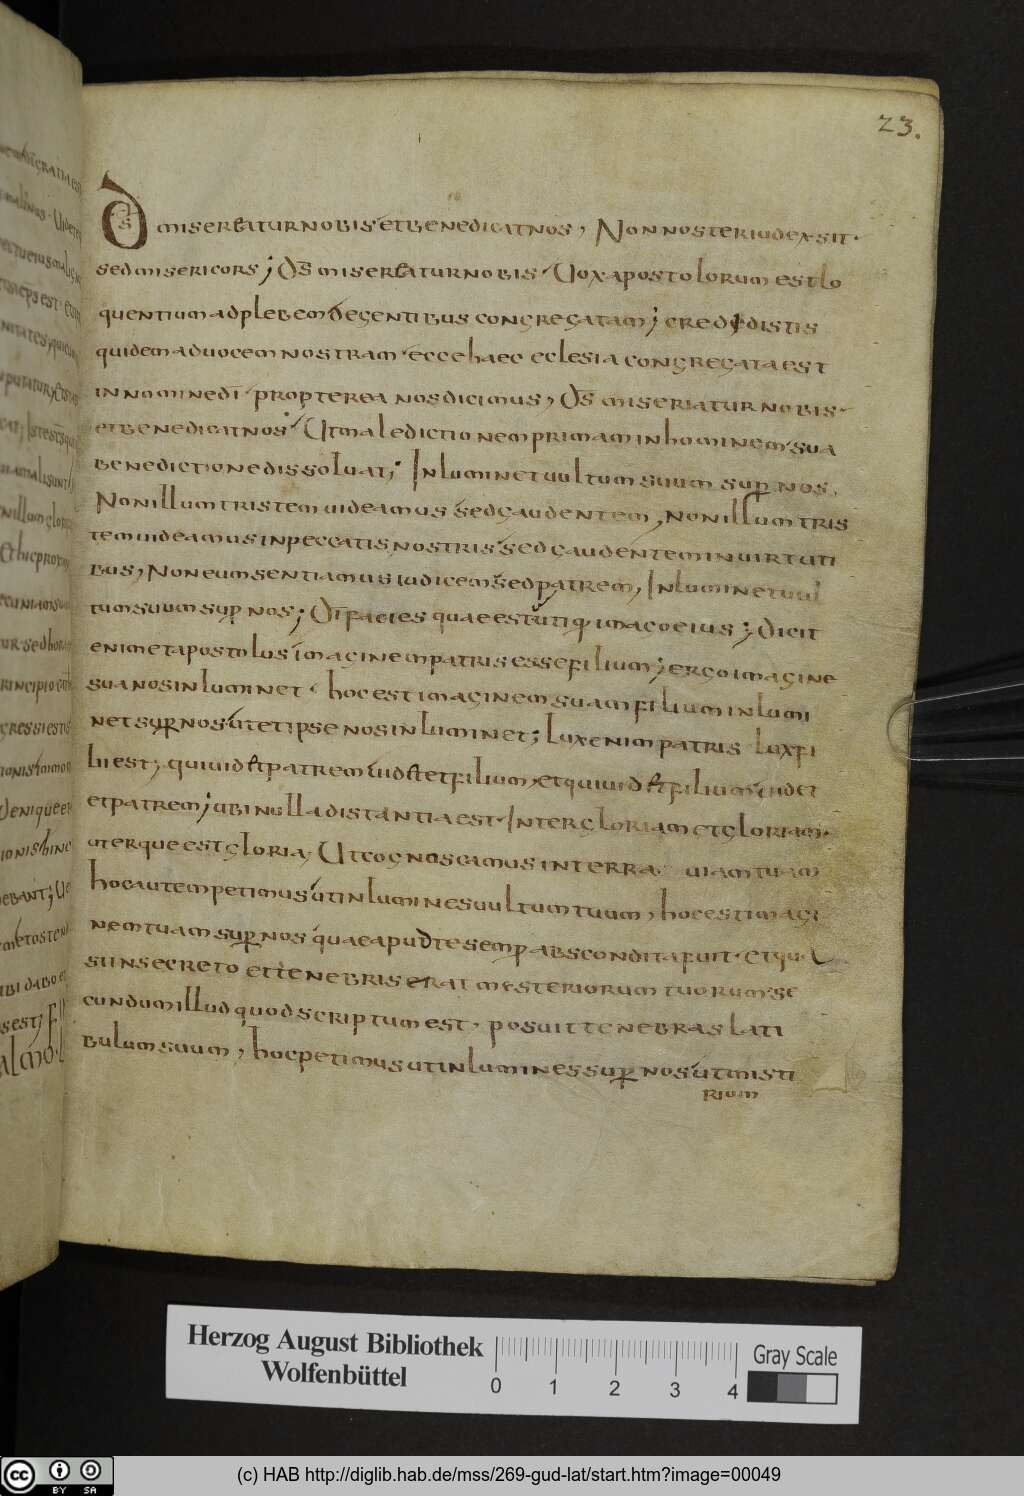 23.
D̅s̅ misereatur nobis et benedicat nos, Non noster iudex sit.
sed misericors; D̅s̅ misereatur nobis. Vox apostolorum est lo
quentium ad plebem de gentibus congregatam; credidistis
quidem ad uocem nostram. ecce haec eclesia congregata est
in nomine d̅i̅. propterea nos dicimus, D̅s̅ miseriatur nobis.
et benedicat nos. Ut maledictionem primam in hominem sua
benedictione dissoluat; Inluminet uultum suum sup̅ nos,
Non illum tristem uideamus sed gaudentem, non illum tris
tem uideamus in peccatis nostris. sed gaudentem in uirtuti
bus, Non eum sentiamus iudicem. sed patrem, Inluminet uul
tum suum sup̅ nos; D̅i̅ facies quae est utiq; imago eius; Dicit
enim et apostolus imaginem patris esse filium; ergo imagine
sua nos inluminet. hoc est imaginem suam filium inlumi
net sup̅ nos ut et ipse nos inluminet; Lux enim patris lux fi
lii est; qui uidet patrem uidet et filium, et qui uidet filium uidet
et patrem; ubi nulla distantia est. Inter gloriam et gloriam.
uterque est gloria, Ut cognoscamus in terra uiam tuam
hoc autem petimus ut inlumines uultum tuum, hoc est imagi
nem tuam sup̅ nos quae apud te semp̅ abscondita fuit. et qua
si in secreto et tenebris erat mysteriorum tuorum. se
cundum illud quod scriptum est, posuit tenebras lati
bulum suum, hoc petimus ut inlumines sup̅ nos ut misti
rium
Herzog August Bibliothek
Wolfenbüttel
0 1 2 3 4
Gray Scale
cc BY SA
(c) HAB http://diglib.hab.de/mss/269-gud-lat/start.htm?image=00049